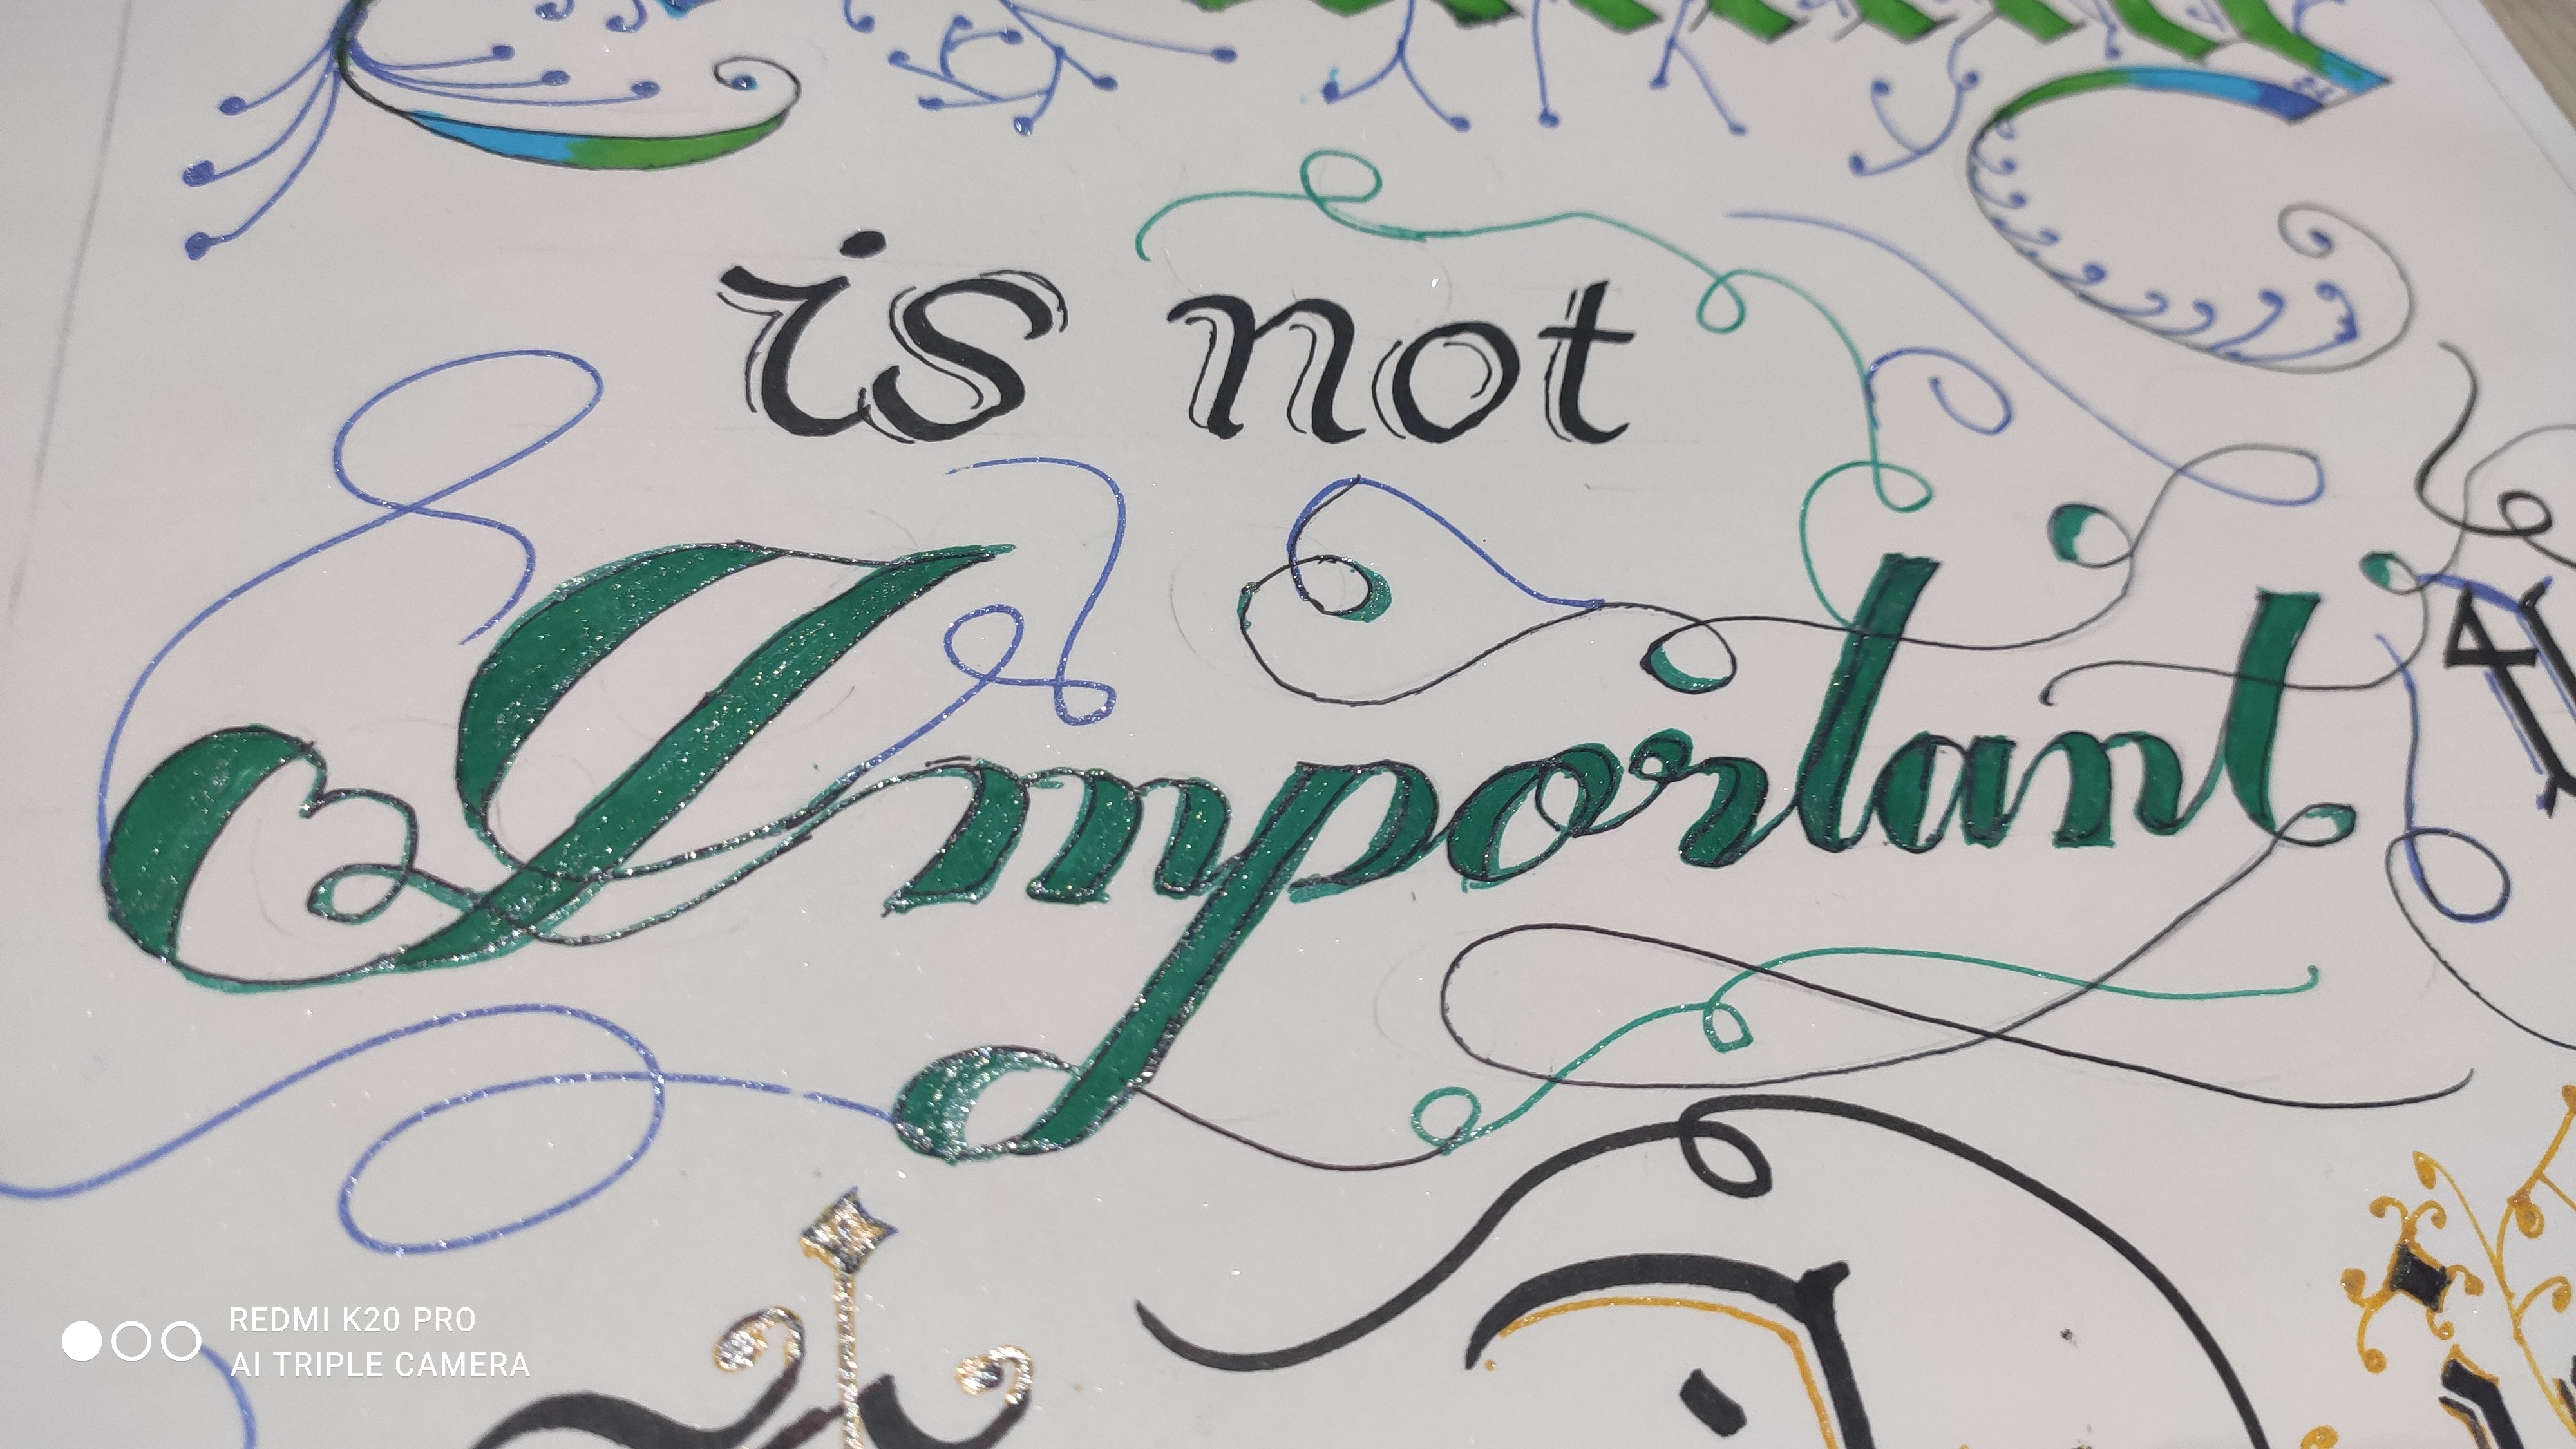 is not
Important
REDMI K20 PRO
AI TRIPLE CAMERA